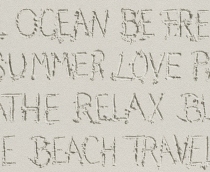 L OCEAN BE FRE
SUMMER LOVE
ATHE RELAX
E BEACH TRAVEL